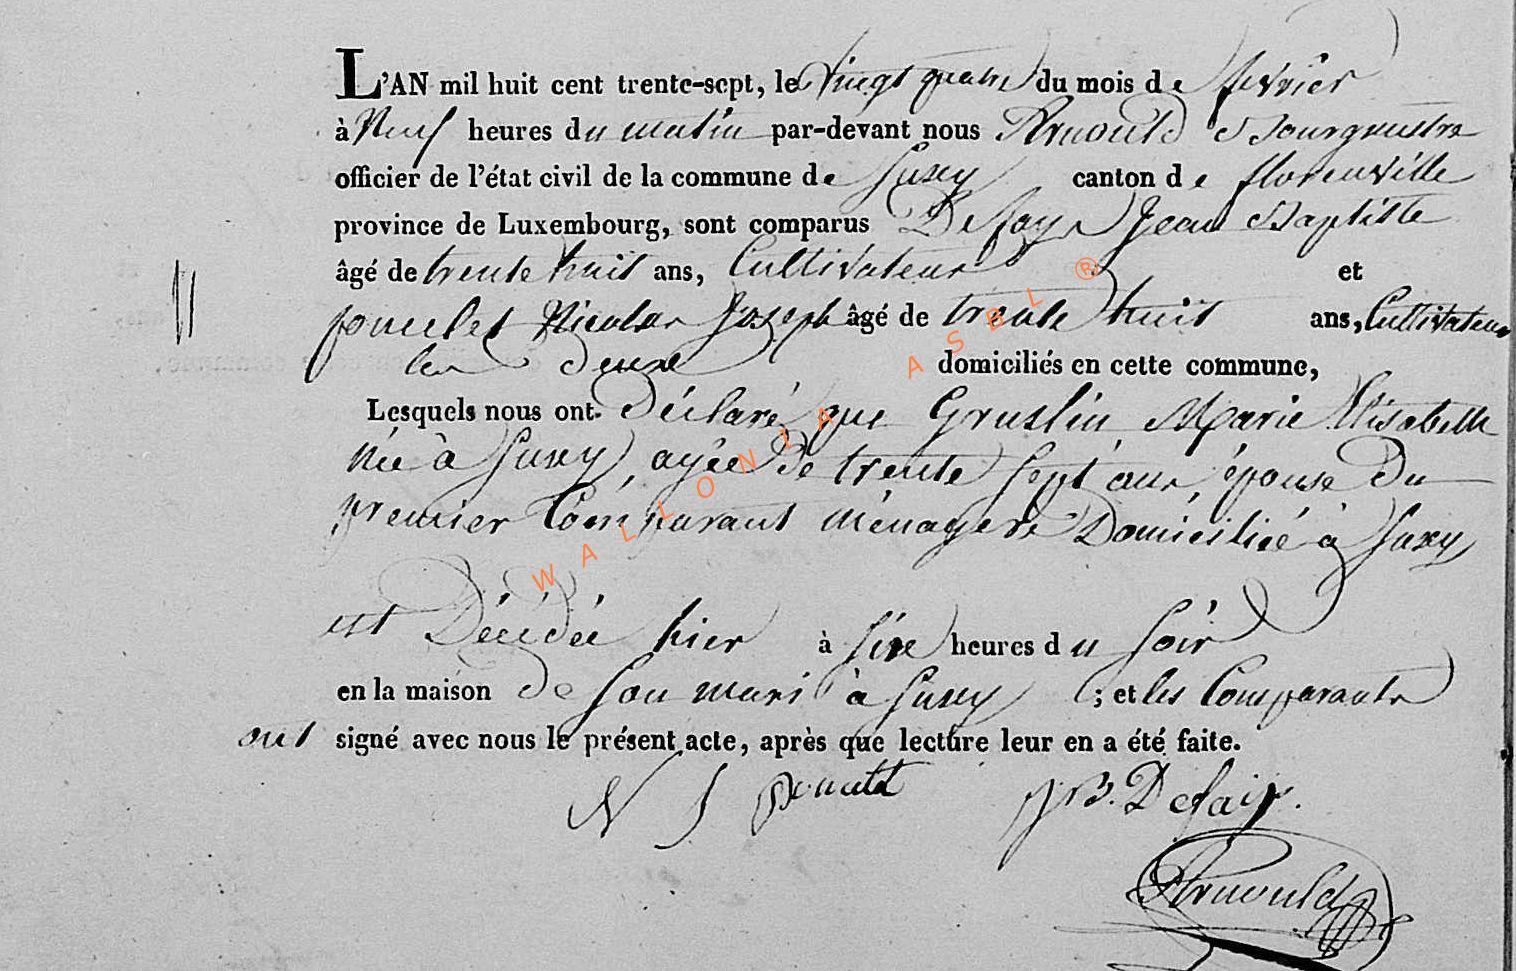 L'AN mil huit cent trente-sept, le vingt quatre du mois de fevrier
à Neuf heures du matin par-devant nous Arnould Bourgmestre
officier de l'état civil de la commune de Suxy canton de florenville
province de Luxembourg, sont comparus Defoy Jean Baptiste
âgé de trente huit ans, Cultivateur et
poncelet Nicolas Joseph âgé de trente huit ans, Cultivateur
les deux domiciliés en cette commune,
Lesquels nous ont Déclaré que Gruslin Marie Elisabeth
née à Suxy, agée de trente sept ans, épouse du
premier Comparant ménagere Domiciliée à Suxy
est Décédée hier à six heures du soir
en la maison de son mari à Suxy ; et les Comparants
ont signé avec nous le présent acte, après que lecture leur en a été faite.
N J J B. Defair.
Arnould
WALLONIA ASBL ®